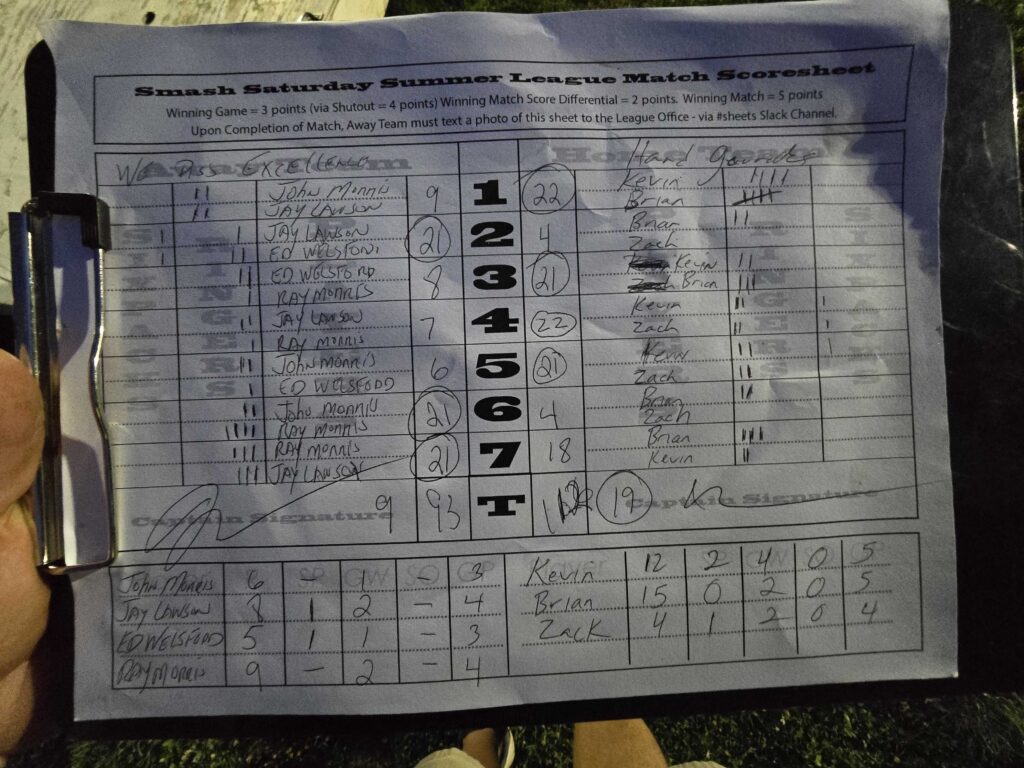 Smash Saturday Summer League Match Scoresheet
Winning Game = 3 points (via Shutout = 4 points) Winning Match Score Differential = 2 points. Winning Match = 5 points
Upon Completion of Match, Away Team must text a photo of this sheet to the League Office - via #sheets Slack Channel.
Away Team Home Team
JOHN MORRIS 9 1 22 Kevin
JAY LAWSON Brian
JAY LAWSON 21 2 4 Brian
ED WELSFORD Zach
ED WELSFORD 8 3 21 Kevin
RAY MORRIS Brian
JAY LAWSON 7 4 22 Kevin
RAY MORRIS Zach
JOHN MORRIS 6 5 21 Kevin
ED WELSFORD Zach
JOHN MORRIS 21 6 4 Brian
RAY MORRIS Zach
RAY MORRIS 21 7 18 Brian
JAY LAWSON Kevin
9 93 T 19
Captain Signature Captain Signature
JOHN MORRIS 6 - 1 - 3 Kevin 12 2 4 0 5
JAY LAWSON 8 1 2 - 4 Brian 15 0 2 0 5
ED WELSFORD 5 1 1 - 3 Zack 4 1 2 0 4
RAY MORRIS 9 - 2 - 4